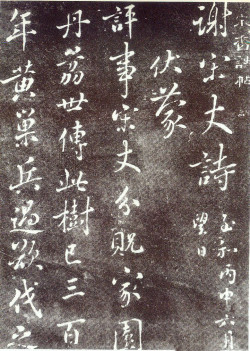 宋香詩帖
謝宋丈詩
至和丙申六月
望日
伏蒙
評事宋丈分貺家園
丹荔世傳此樹已三百
年黃巢兵過欲伐之